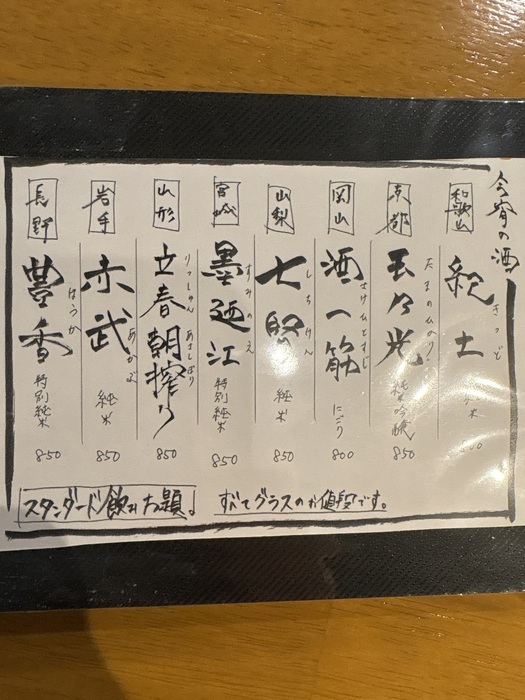 今宵の酒
和歌山
紀土
きっど
京都
玉乃光
たまのひかり
純米吟醸
850
岡山
酒一筋
さけひとすじ
にごり
800
山梨
七賢
しちけん
純米
850
宮城
墨廼江
すみのえ
特別純米
850
山形
立春朝搾り
りっしゅん あさしぼり
850
岩手
赤武
あかぶ
純米
850
長野
豊香
ほうか
特別純米
850
スタンダード飲み放題。
すべてグラスのお値段です。